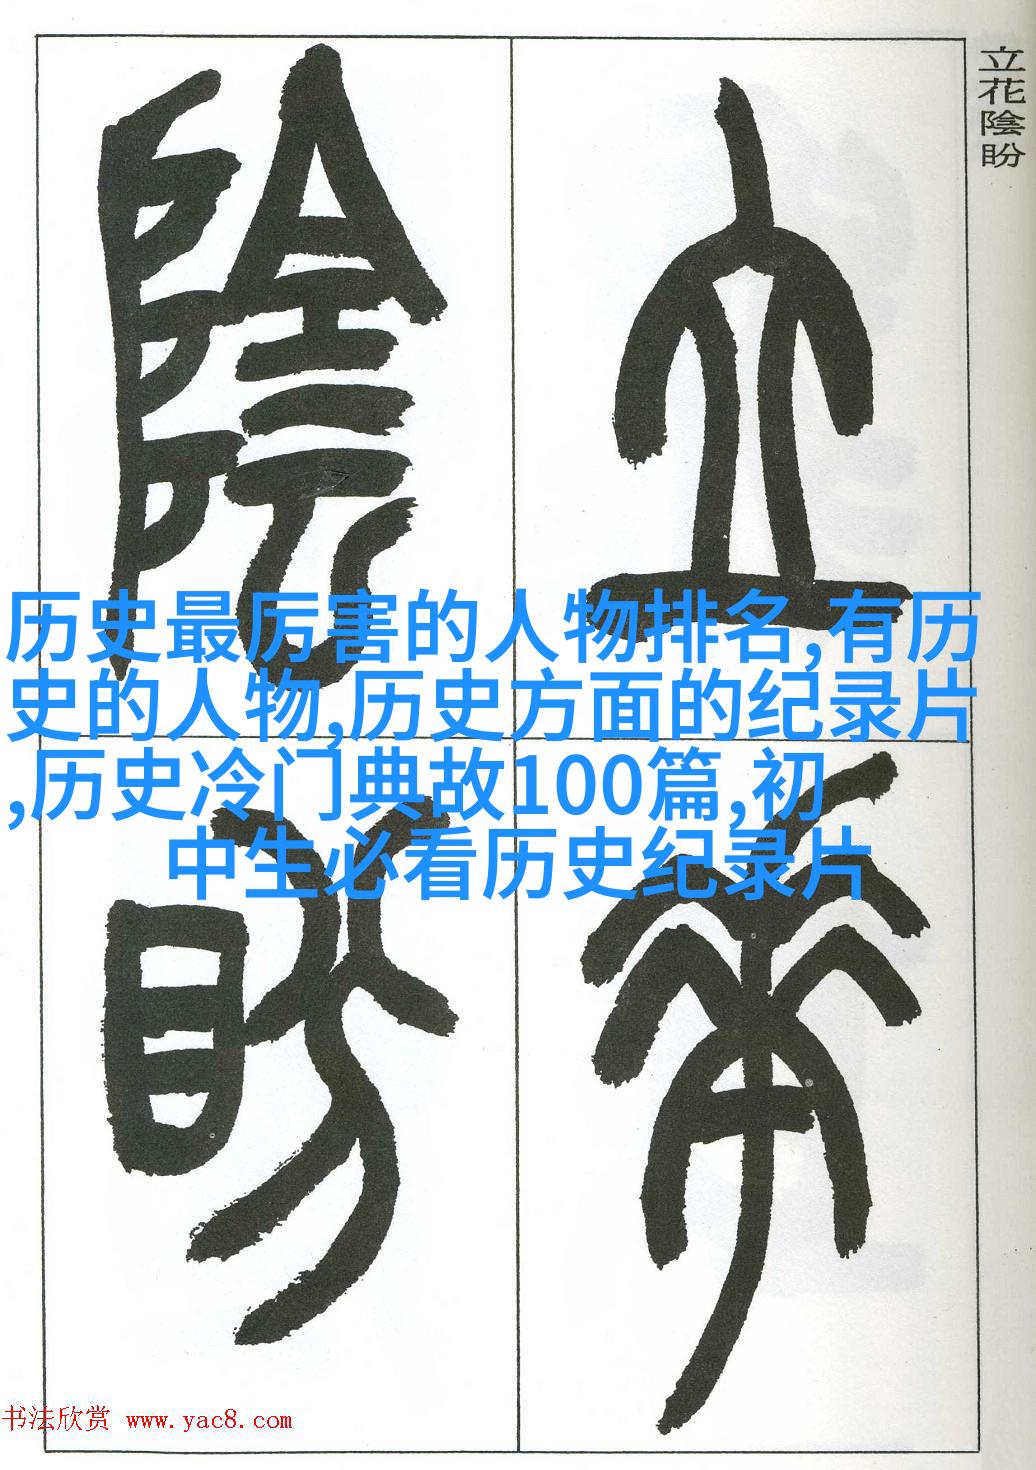 立花陰盼
立
花
陰
盼
历史最厉害的人物排名,有历
史的人物,历史方面的纪录片
,历史冷门典故100篇,初
中生必看历史纪录片
书法欣赏 www.yac8.com